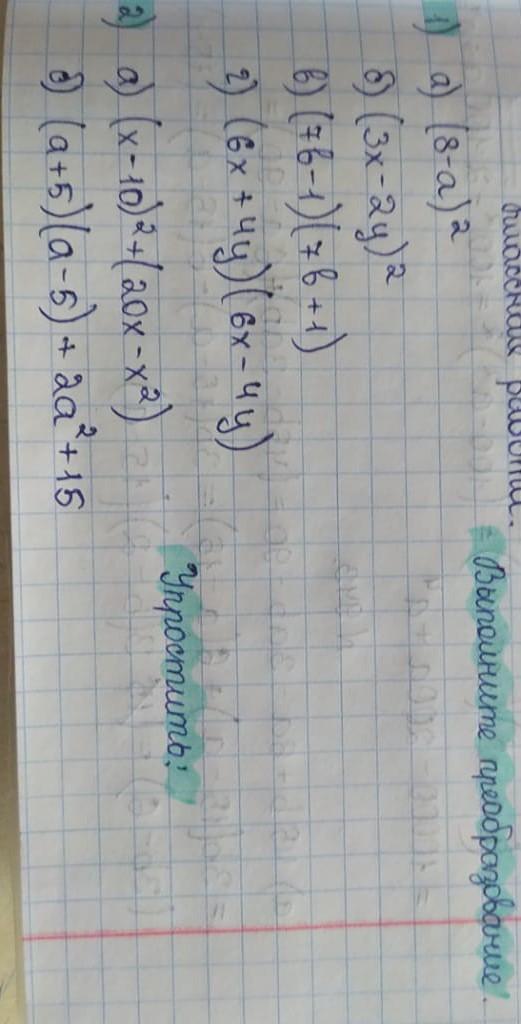 Классная работа.
Выполните преобразование.
1) а) (8-а)²
б) (3x-2y)²
в) (7b-1)(7b+1)
г) (6x+4y)(6x-4y)
Упростить:
2) а) (x-10)²+(20x-x²)
б) (а+5)(а-5)+2а²+15